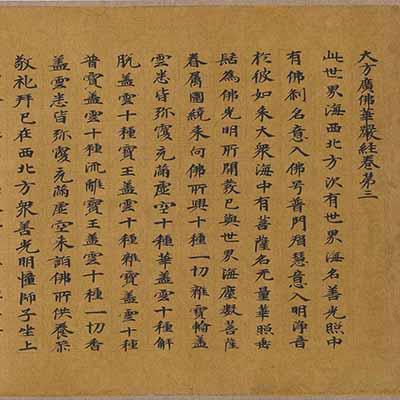 大方廣佛華嚴経卷第三
此世界海西北方次有世界海名善光照中
有佛剎名意入佛号普門智慧意入明淨音
於彼如来大衆海中有菩薩名无量華照垂
髻為佛光明所開發已與世界海塵數菩薩
眷属圍繞来向佛所興十種一切雜寶輪蓋
雲悉皆弥覆充滿虛空十種華蓋雲十種解
脫蓋雲十種寶王蓋雲十種雜寶蓋雲十種
普寶蓋雲十種流離寶王蓋雲十種一切香
蓋雲悉皆弥覆充滿虛空来詣佛所供養恭
敬礼拜已在西北方衆善光明幢師子坐上